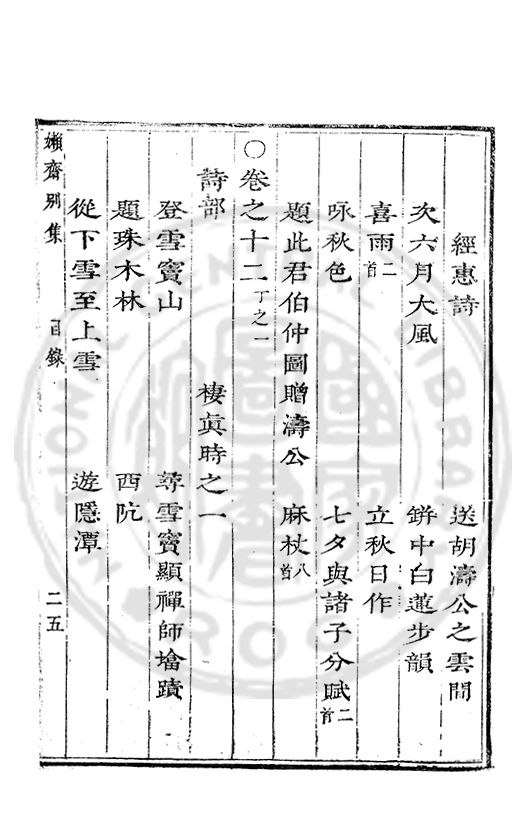 經惠詩　送胡濤公之雲間
次六月大風　缾中白蓮步韻
喜雨二首　立秋日作
咏秋色　七夕與諸子分賦二首
題此君伯仲圖贈濤公　麻杖八首
○卷之十二丁之一
詩部　棲眞時之一
登雪竇山　尋雪竇顯禪師墖蹟
題珠木林　西阬
從下雪至上雪　遊隱潭
嬾齋別集　目錄　二五